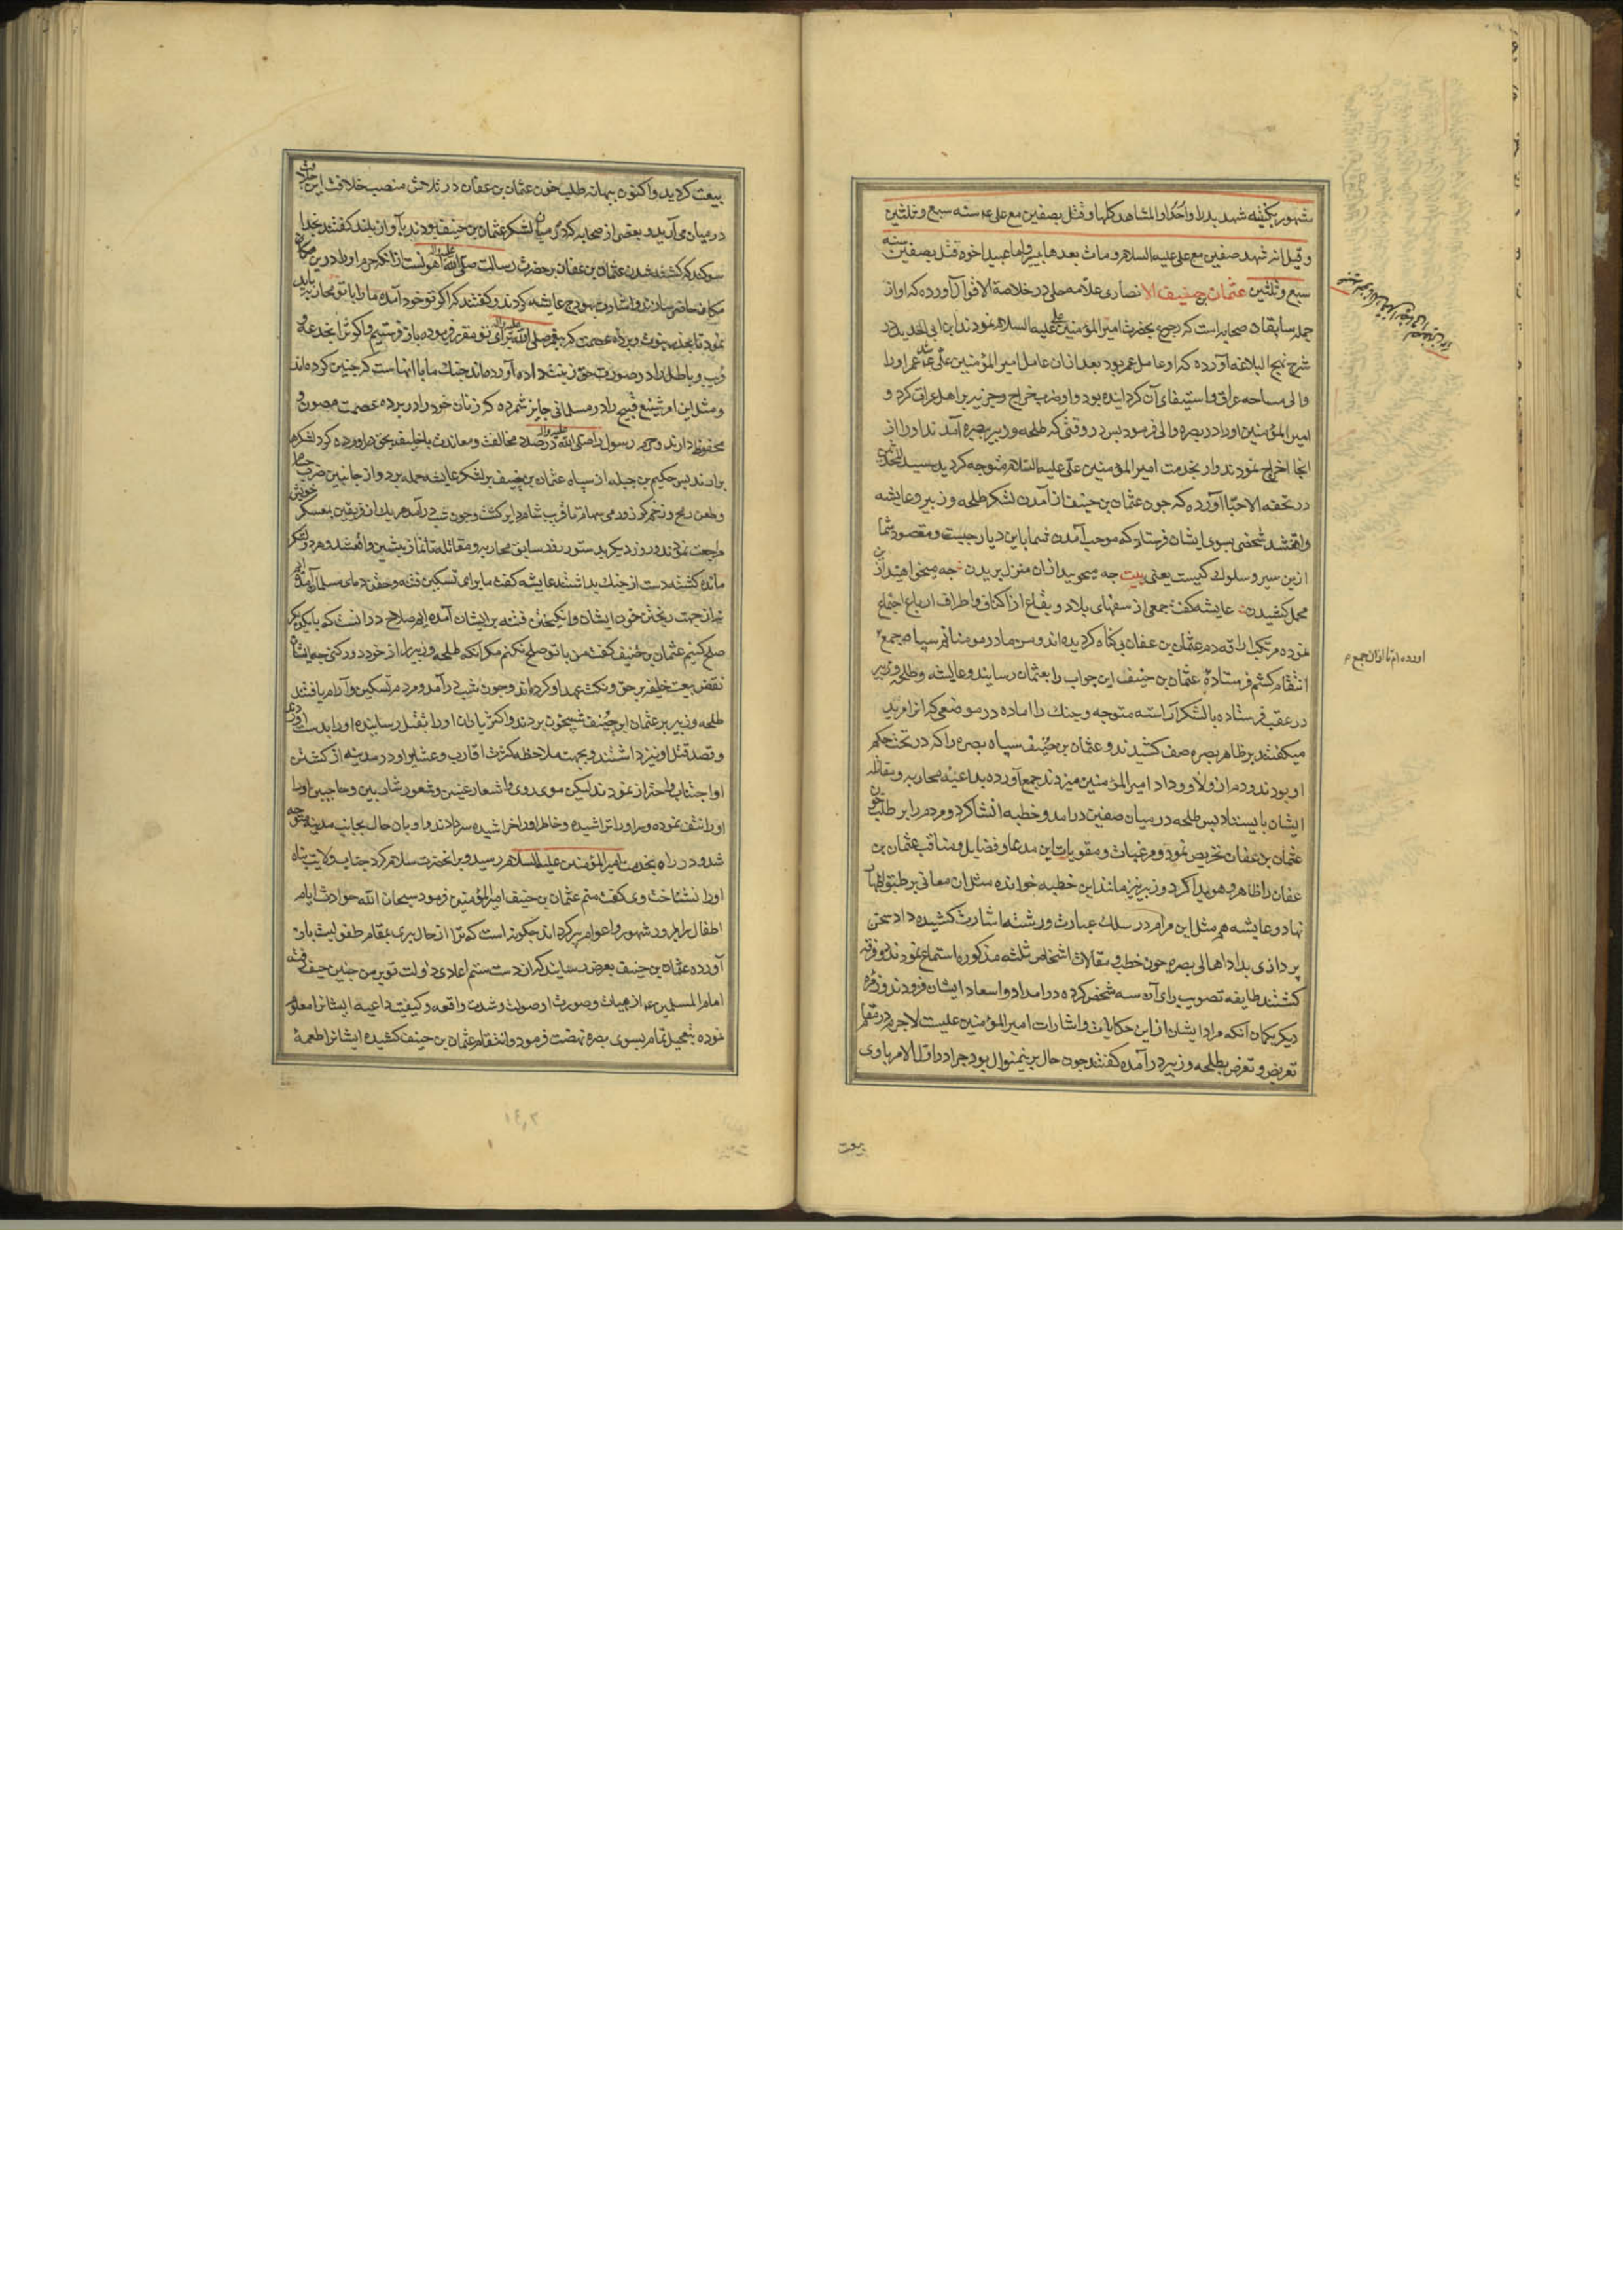 شهور بكنيفه شهد بدرا واحدا والمشاهد كلها وقتل بصفين مع علی ع سنه سبع وثلثین
وقیل انه شهد صفین مع علی علیه السلام ومات بعدها بیسیر واما عبید اخوه قتل بصفین سنه
سبع وثلثین عثمان بن حنیف الانصاری علامه حلی در خلاصة الاقوال آورده که او از
جمله سابقان صحابه است که رجوع بحضرت امیرالمؤمنین علی علیه السلام نمودند ابن ابی الحدید در
شرح نهج البلاغه آورده که او عامل عمر بود بعد ازان عامل امیر المؤمنین علی شد عمر اورا
والی مساحه عراق واستیفای آن کردانیده بود واو ضرب خراج وجزیه بر اهل عراق کرد و
امیر المؤمنین اورا در بصره والی فرمود پس در وقتی که طلحه وزبیر ببصره آمدند اورا از
انجا اخراج نمودند واو بخدمت امیر المؤمنین علی علیه السلام متوجه کردید سید المحدثین
در تحفه الاحبا آورده که جون عثمان بن حنیف از آمدن لشکر طلحه وزبیر وعایشه
واقف شد شخصی بسوی ایشان فرستاد که موجب آمدن شما باین دیار جیست ومقصود شما
ازین سیر وسلوک کیست یعنی بیت جه میجویید ازان منزل بریدن جه میخواهید ازین
محمل کشیدن عایشه کفت جمعی از سفهای بلاد وبقاع از اکناف واطراف ارباع اجتماع
نموده مرتکب اراقه دم عثمان بن عفان بی کناه کردیده اند ومن مادر مومنانم سپاه جمع
اورده ام تا ازان جمع
انتقام کشم فرستادهٔ عثمان بن حنیف این جواب را بعثمان رسانید وعایشه وطلحه وزبیر
در عقب فرستاده بالشکر آراسته متوجه وجنک را اماده در موضعی که انرا مربد
میکفتند بر ظاهر بصره صف کشیدند وعثمان بن حنیف سپاه بصره را که در تحت حکم
او بودند ودم از ولاء ووداد امیر المؤمنین میزدند جمع آورده بداعیه محاربه ومقاتله
ایشان بایستاد پس طلحه در میان صفین درامد وخطبه انشا کرد ومردم را بر طلب خون
عثمان بن عفان تحریص نمود ومرغبات ومقویات این مدعا وفضایل ومناقب عثمان بن
عفان را ظاهر وهویدا کرد وزبیر نیز مانند این خطبه خوانده مثل ان معانی بر طبق اظهار
نهاد وعایشه هم مثل این مرام در سلک عبارت ورشته اشارت کشیده داد سخن
پردازی بداد اهالی بصره جون خطب ومقالات اشخاص ثلثه مذکوره استماع نمودند دو فرقه
کشتند طایفه تصویب رای آن سه شخص کرده در امداد واسعاد ایشان فزودند وزمره
دیکر بکمان آنکه مراد ایشان از این حکایات واشارات امیر المؤمنین علیست لاجرم در مقام
تعریض وتعرض بطلحه وزبیر درآمده کفتند جون حال برینمنوال بود جرا در اول الامر باوی
بیعت
بیعت کردید واکنون ببهانه طلب خون عثمان بن عفان در تلاش منصب خلافت این خلاف
در میان می آرید وبعضی از صحابه که در میان لشکر عثمان بن حنیف بودند بآواز بلند کفتند بخدا
سوکند که کشته شدن عثمان بن عفان بر حضرت رسالت صلی الله علیه واله اهونست ازانکه حرم اورا درین مکان
مکافحه حاضر سازند واشارت بهودج عایشه کردند وکفتند که اکر تو خود آمده مارا با تو محاربه باید
نمود تا بخدر بیوت وپرده عصمت که پیغمبر صلی الله علیه واله برای تو مقرر فرموده باز فرستیم واکر ترا بخدعه و
فریب وباطل را در صورت حق زینت داده آورده اند جنک ما با انهاست که جنین کرده اند
ومثل این امر شنیع قبیح را در مسلمانی جایز شمرده که زنان خود را در پرده عصمت مصون و
محفوظ دارند وحرم رسول را صلی الله علیه واله در صدد مخالفت ومعاندت با خلیفه بحق دراورده کرد لشکرها
برآرند پس حکیم بن جبله از سپاه عثمان بن حنیف بر لشکر عایشه حمله برد واز جانبین ضرب حسام
وطعن رمح وزخم کرز ورمی سهام تا قریب شام دایر کشت وجون شب درآمد هر یک از فریقین بمعسکر خویش
مراجعت نمودند وروز دیکر بدستور روز سابق محاربه ومقاتله مانند از پیشین واقع شد وهر دو لشکر
مانده کشته دست از جنک بداشتند عایشه کفت ما برای تسکین فتنه وحقن دمای مسلمانان آمده ایم
نه از جهت ریختن خون ایشان وانکیختن فتنه بر ایشان آمده ایم صلاح در انست که با یکدیکر
صلح کنیم عثمان بن حنیف کفت من با تو صلح نکنم مکر آنکه طلحه وزبیر را از خود دور کنی جه ایشان
نقض بیعت خلیفه بر حق ونکث عهد او کرده اند وجون شب درآمد ومردم تسکین وآرام یافتند
طلحه وزبیر بر عثمان ابن حنیف شبیخون بردند واکثر یاران اورا بقتل رسانیده اورا بدست آوردند
وقصد قتل او نیز داشتند وبجهت ملاحظه کثرت اقارب وعشایر او در مدینه از کشتن
او اجتناب واحتراز نمودند لیکن موی روی واشعار عینین وشعور شاربین وحاجبین اورا
اورا نتف نموده وسر اورا تراشیده وخاطر اورا خراشیده سر دادند واو بان حال بجانب مدینه متوجه
شد ودر راه بخدمت امیر المؤمنین علیه السلام رسید وبر انحضرت سلام کرد جناب ولایت پناه
اورا نشناخت وی کفت منم عثمان بن حنیف امیر المؤمنین فرمود سبحان الله حوادث ایام
اطفال را بمرور شهور واعوام پیر کرداند جکونه است که ترا از حال پیری بمقام طفولیت باز
آورده عثمان بن حنیف بعرض رسانید که از دست ستم اعادی دولت تو بر من جنین حیف رفته
امام المسلمین ع از هیات وصورت او صولت وشدت واقعه وکیفیت داعیه ایشانرا معلوم
نموده بتعجیل تمام بسوی بصره نهضت فرمود وانتقام عثمان بن حنیف کشیده ایشانرا طعمه